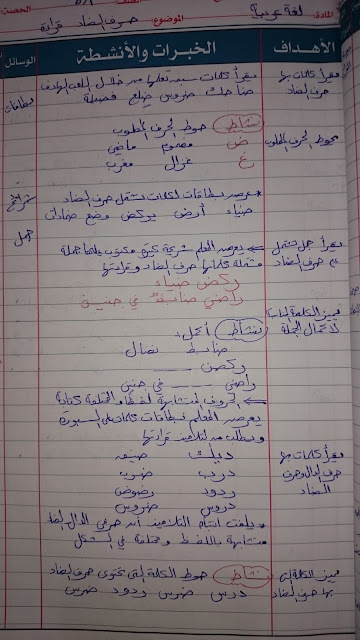 المادة: لغة عربية الموضوع: حرف الضاد قراءة الحصة
الأهداف الخبرات والأنشطة الوسائل
يقرأ كلمات بها حرف الضاد
يقرأ كلمات سبق تعلمها من خلال اللعب
ضاحك ضروس ضلع فضيلة
بطاقات
نشاط حوط الحرف المطلوب
يحوط الحرف المطلوب
ض مضموم ماضي
غ غزال مغرب
عرض بطاقات لكلمات تشتمل حرف الضاد
ضياء أرض يركض وضع ضمادات
شرائح
جمل
يقرأ جمل تشتمل حرف الضاد
يعرض المعلم شريحة كرتون مكتوب عليها جملة
مشتملة كلماتها حرف الضاد وقراءتها
ركض ضياء
راضي ضابط في جنيف
يميز الكلمة المناسبة لإكمال الجملة
نشاط أكمل:
ضابط نضال
ركض ____
راضي ____ في جنين
الحروف المتشابهة لفظا والمختلفة كتابة
يعرض المعلم بطاقات كلمات على السبورة
ويطلب من التلاميذ قراءتها
يقرأ كلمات بها حرف الدال وحرف الضاد
ديك ضيف
درب ضرب
ردود رضوض
دروس ضروس
يلفت انتباه التلاميذ أن حرفي الدال والضاد
متشابهة باللفظ ومختلفة في الشكل
يميز الكلمة التي بها حرف الضاد
نشاط حوط الكلمة التي تحتوي حرف الضاد
درس ضرس ردود ضرس